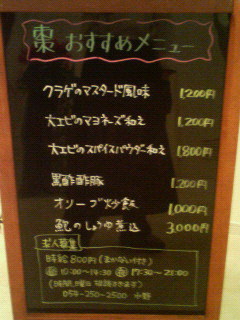 棗 おすすめメニュー
クラゲのマスタード風味 1,200円
大エビのマヨネーズ和え 1,200円
大エビのスパイスパウダー和え 1,800円
黒酢酢豚 1,200円
オリーブ炒飯 1,000円
鮑のしょうゆ煮込 3,000円
求人募集
時給800円(まかない付き)
10:00~14:30 17:30~21:00
(時間、曜日 相談できます)
059-250-2500